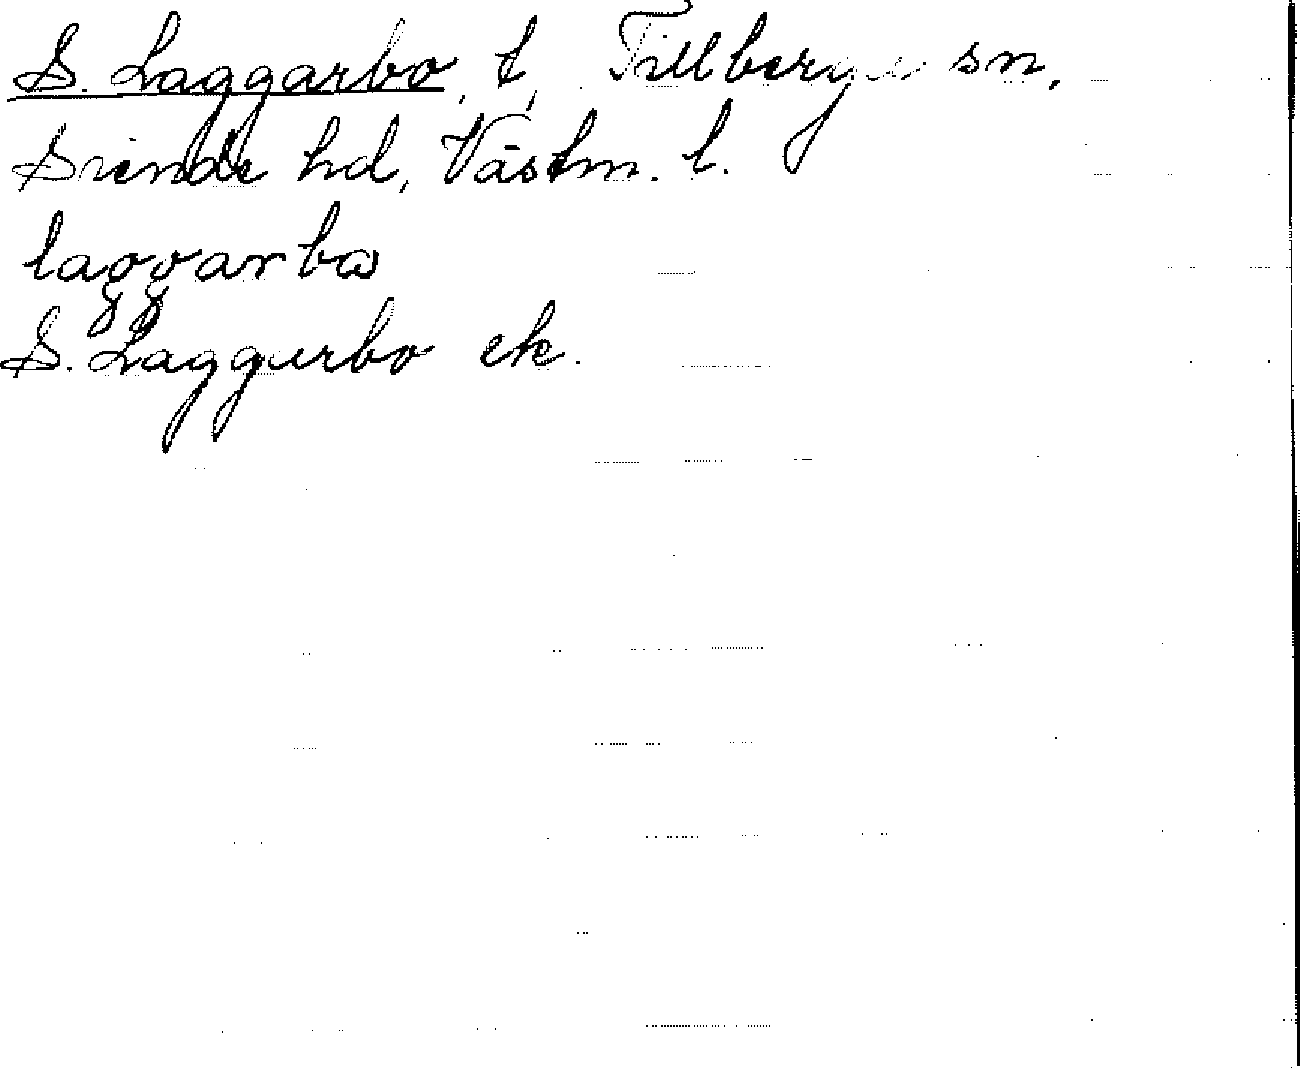 S. Laggarbo, t, Tillberga sn,
Siende hd, Västm. l.
laggarbω
S. Laggarbo ek.